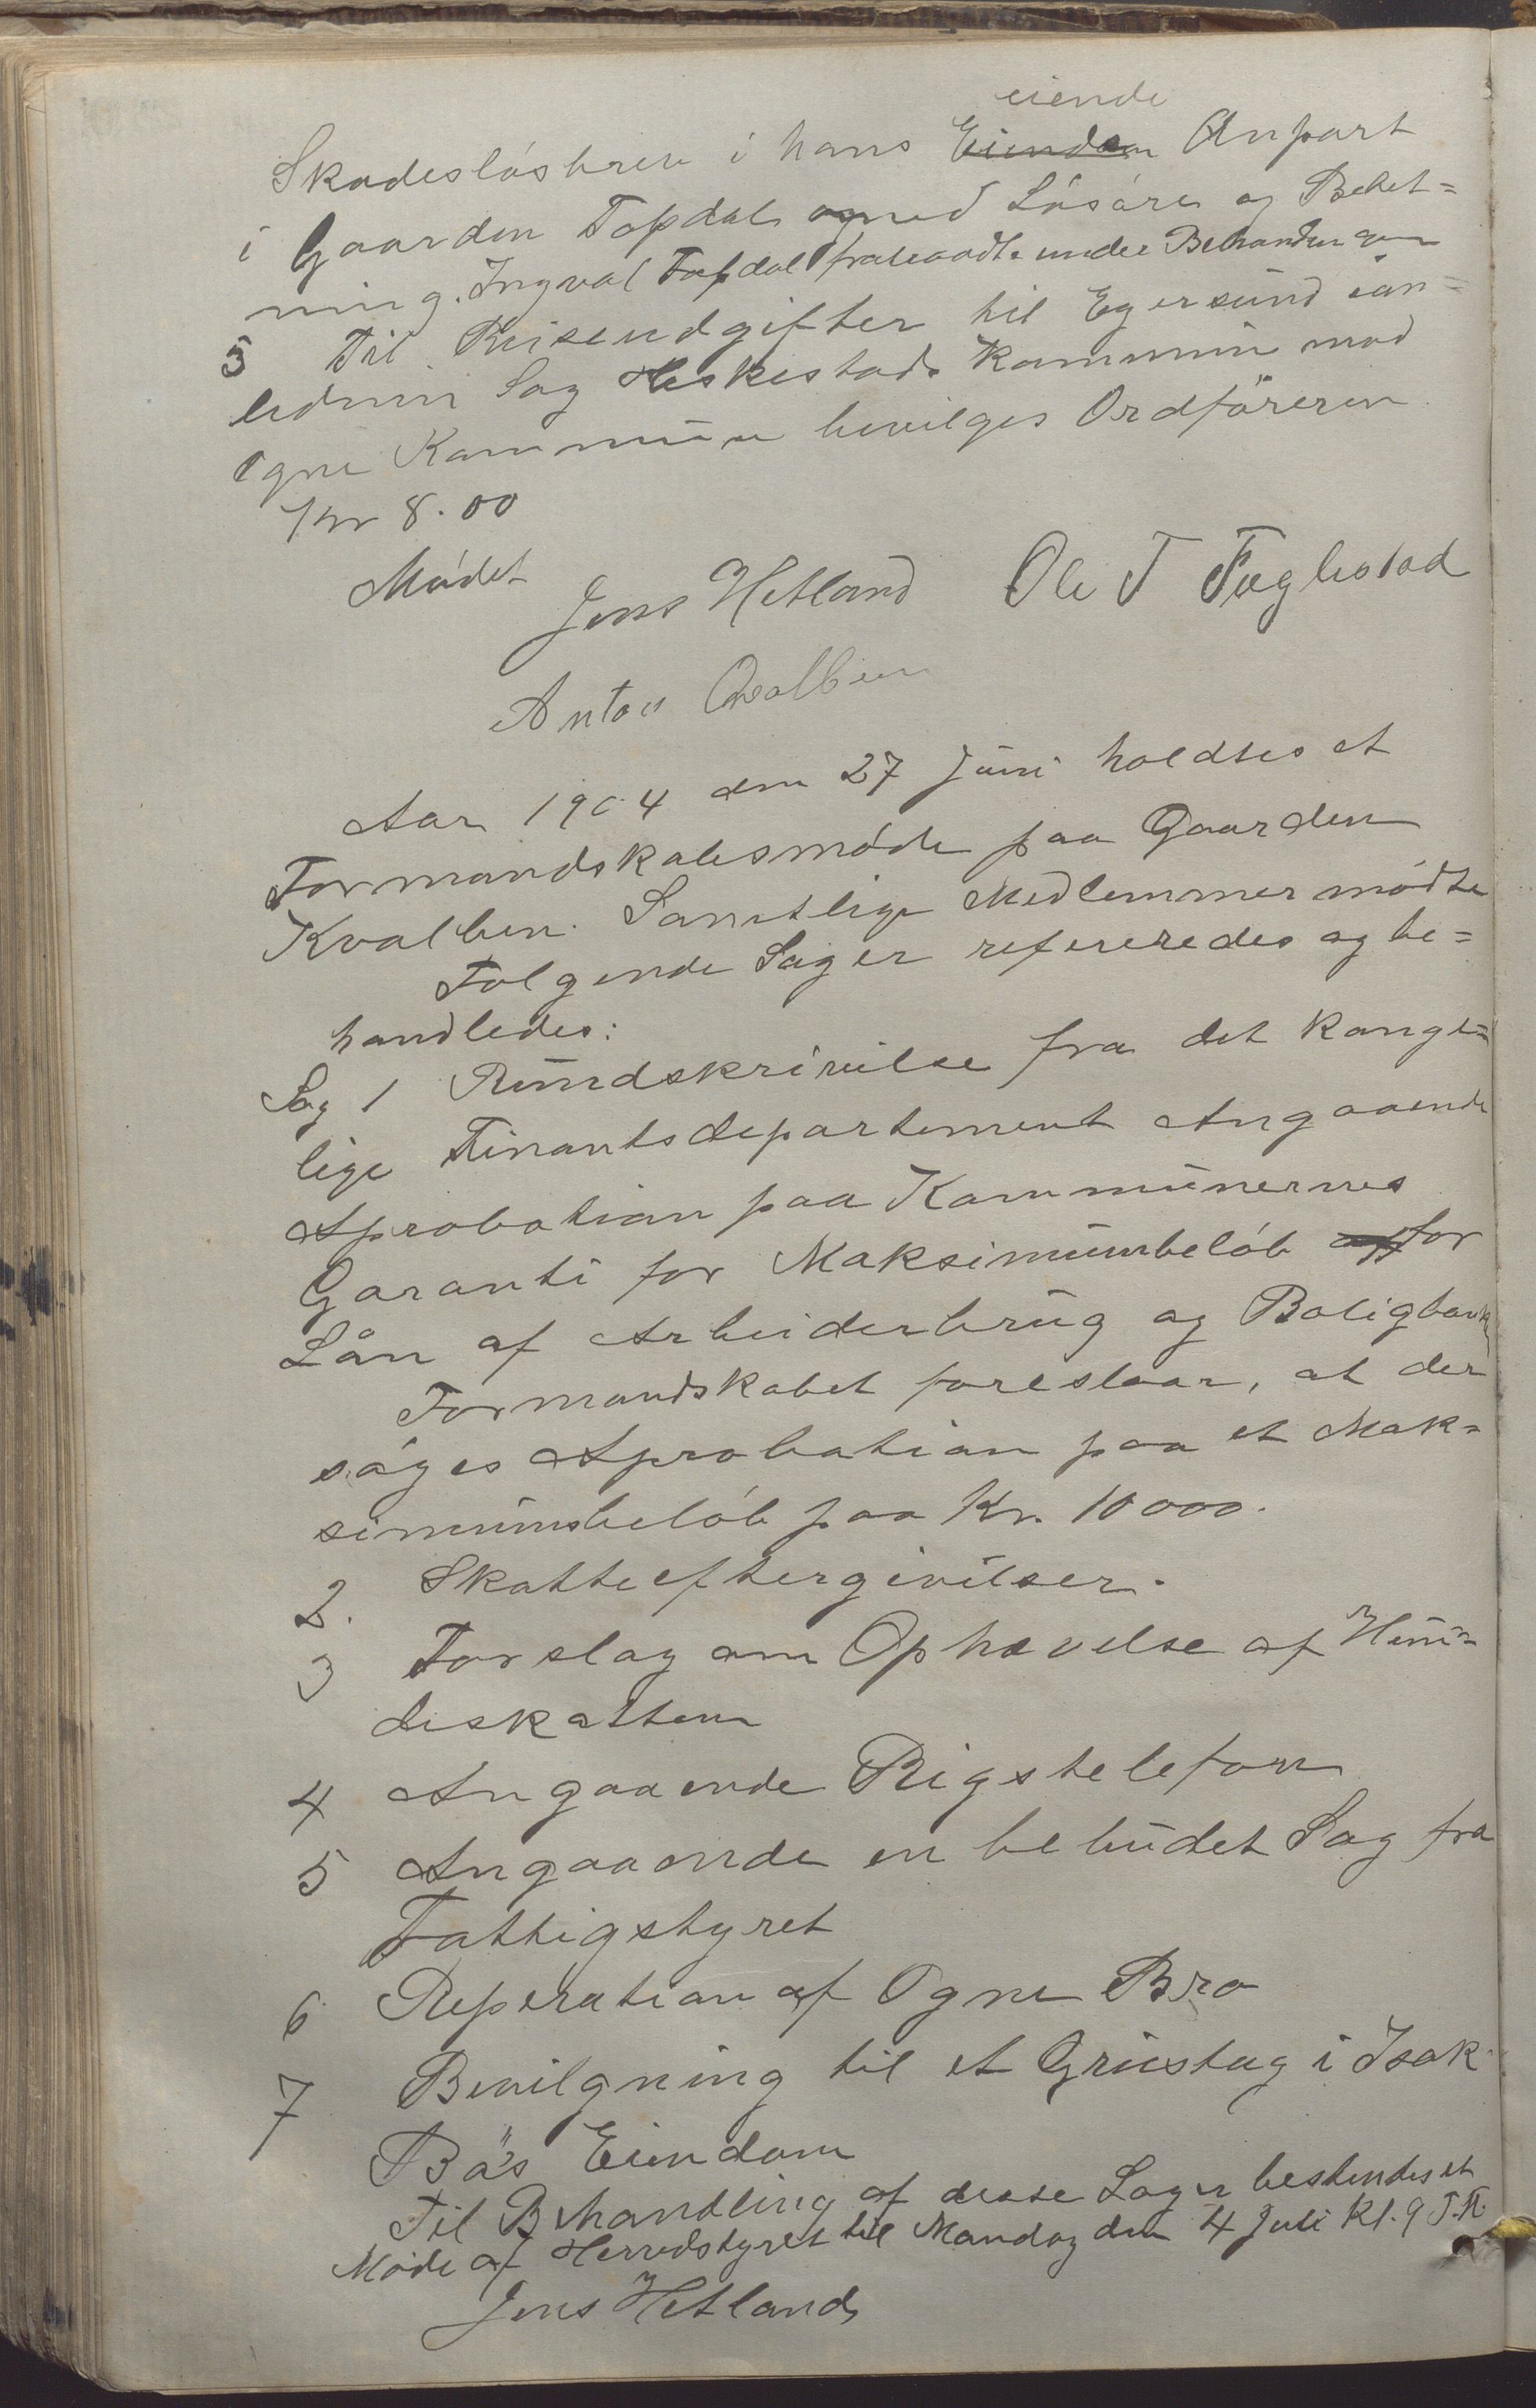 eiende
Skadesløsbrev i hans Eiendom Anpart
i Gaarden Topdal med Løsøre og Behet=
ning. Ingval Topdal fratraadte under Behandlingen
5 Til Reiseudgifter til Egersund ían=
lednin Sag Heskestads Kommune mod
Ogne Kommune bevilges Ordføreren
Kr 8.00
Mødet
Jens Hetland Ole T Fuglestad
Anton Qvalben
Aar 1904 den 27 Juni holdtes et
Formandskabsmøde paa Gaarden
Kvalben. Samtlige Medlemmer mødte
Følgende Sager refereredes og be=
handledes:
Sag 1 Rundskrivelse fra det Konge=
lige Finantsdepartement Angaaende
Aprobation paa Kommunernes
Garanti for Maksimumbeløb af for
Lån af Arbeiderbrug og Boligbank
Formandskabet foreslaar, at der
søges Aprobation paa et Mak=
simumsbeløb paa Kr. 10000.
2. Skatteeftergivelser.
3 Forslag om Ophævelse af Hun=
deskatten
4 Angaaende Rigstelefon
5 Angaaende en bebudet Sag fra
Fattigstyret
6 Reperation af Ogne Bro
7 Bevilgning til et Grustag i Isak
Bø's Eiendom
Til Behandling af disse Sager bestemdes et
Møde af Herredstyret til Mandag den 4 Juli Kl. 9 F.M.
Jens Hetland